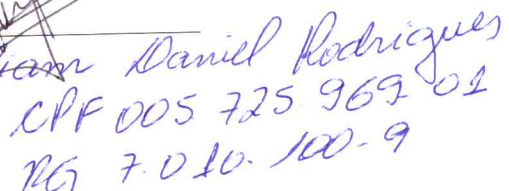 Daniel Rodrigues
CPF 005 725 969 01
RG 7.010.100-9